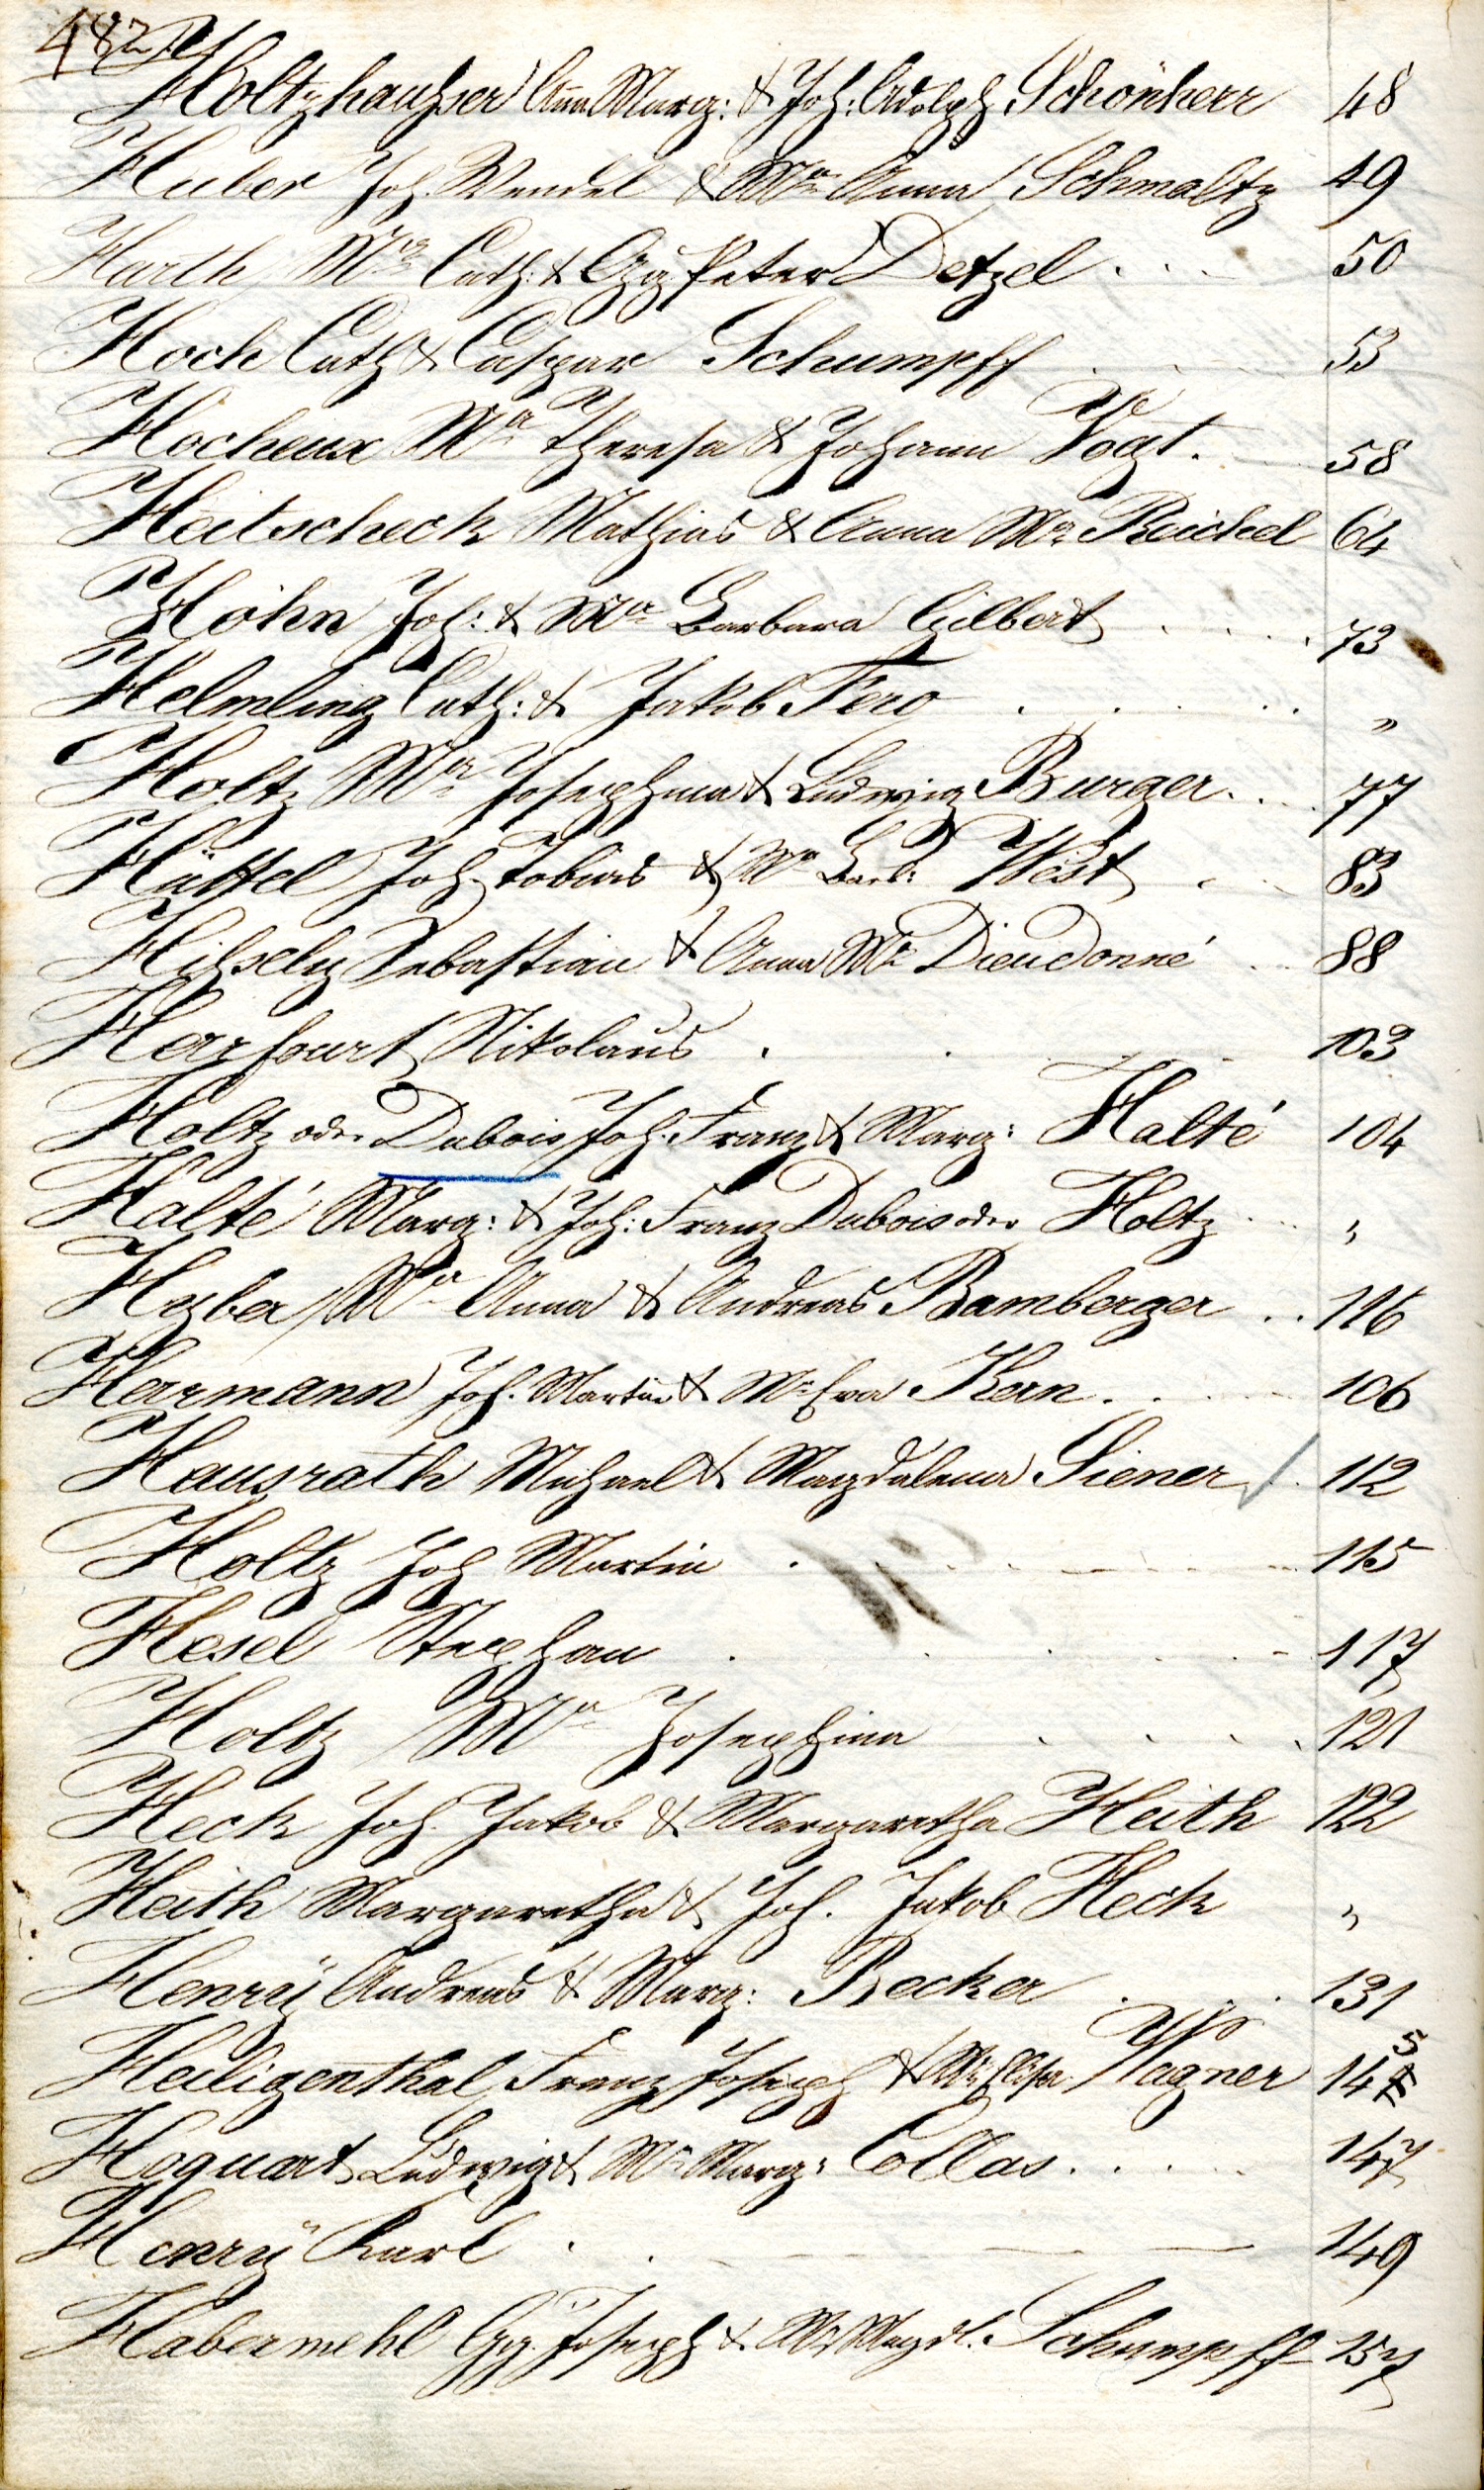 482
Holtzhauser Anna Marg: & Joh: Adolph Schönherr 48
Huber Joh. Wendel & Ma Anna Schmaltz 49
Harth Ma Cath: & Gg. Peter Detzel . . . 50
Hoch Cath & Caspar Schumpff . . . 53
Hocheux Ma Theresa & Johann Vogt. 58
Heitscheck Mathias & Anna Ma Reichel 64
Höhn Joh: & Ma Barbara Gilbert . . . . 73
Helmling Cath: & Jakob Fero . . . . . "
Holtz Ma Josephina & Ludwig Burger. . . 77
Hüttel Joh. Tobias & Ma Barb: West . . 83
Sebastian & Anna Ma Dieudonné . . 88
Herrfourt Nikolaus . . . . . 103
Holtz oder Dubois Joh. Franz & Marg: Halté 104
Halté Marg: & Joh: Franz Dubois oder Holtz . . "
Heyber Ma Anna & Andreas Bamberger . . 116
Herrmann Joh. Martin & Ma Eva Kern . . . 106
Hausrath Michael & Magdalena Siener . 112
Holtz Joh Martin . . . . . 115
Hesel Stephan . . . . . 117
Holtz Ma Josephina . . . . 121
Heck Joh. Jakob & Margaretha Heith 122
Heith Margaretha & Joh. Jakob Heck "
Henrÿ Andreas & Marg: Becker . . . 131
Heiligenthal Franz Joseph & Ma Elisa Wagner 145
Hoquart Ludwig & Ma Marg: Collas . . . . . 147
Henrÿ Karl . . . . 149
Habermehl Gg. Joseph & Ma Magdl. Schumpff 157